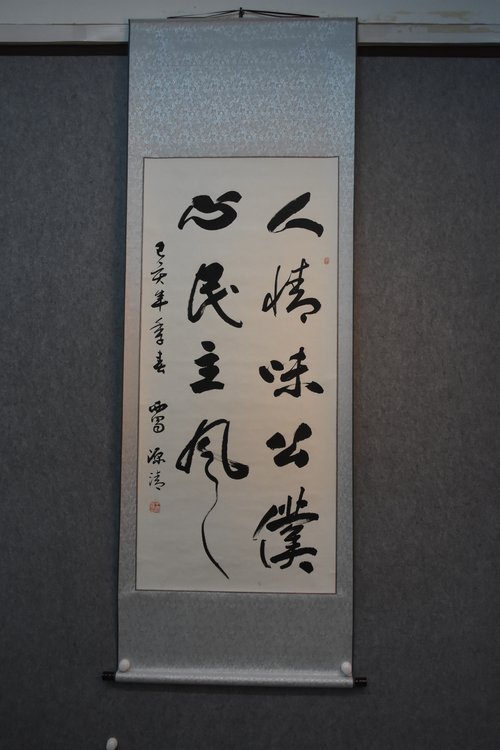 人情味公僕
心民主风
己亥年季春 雷源清